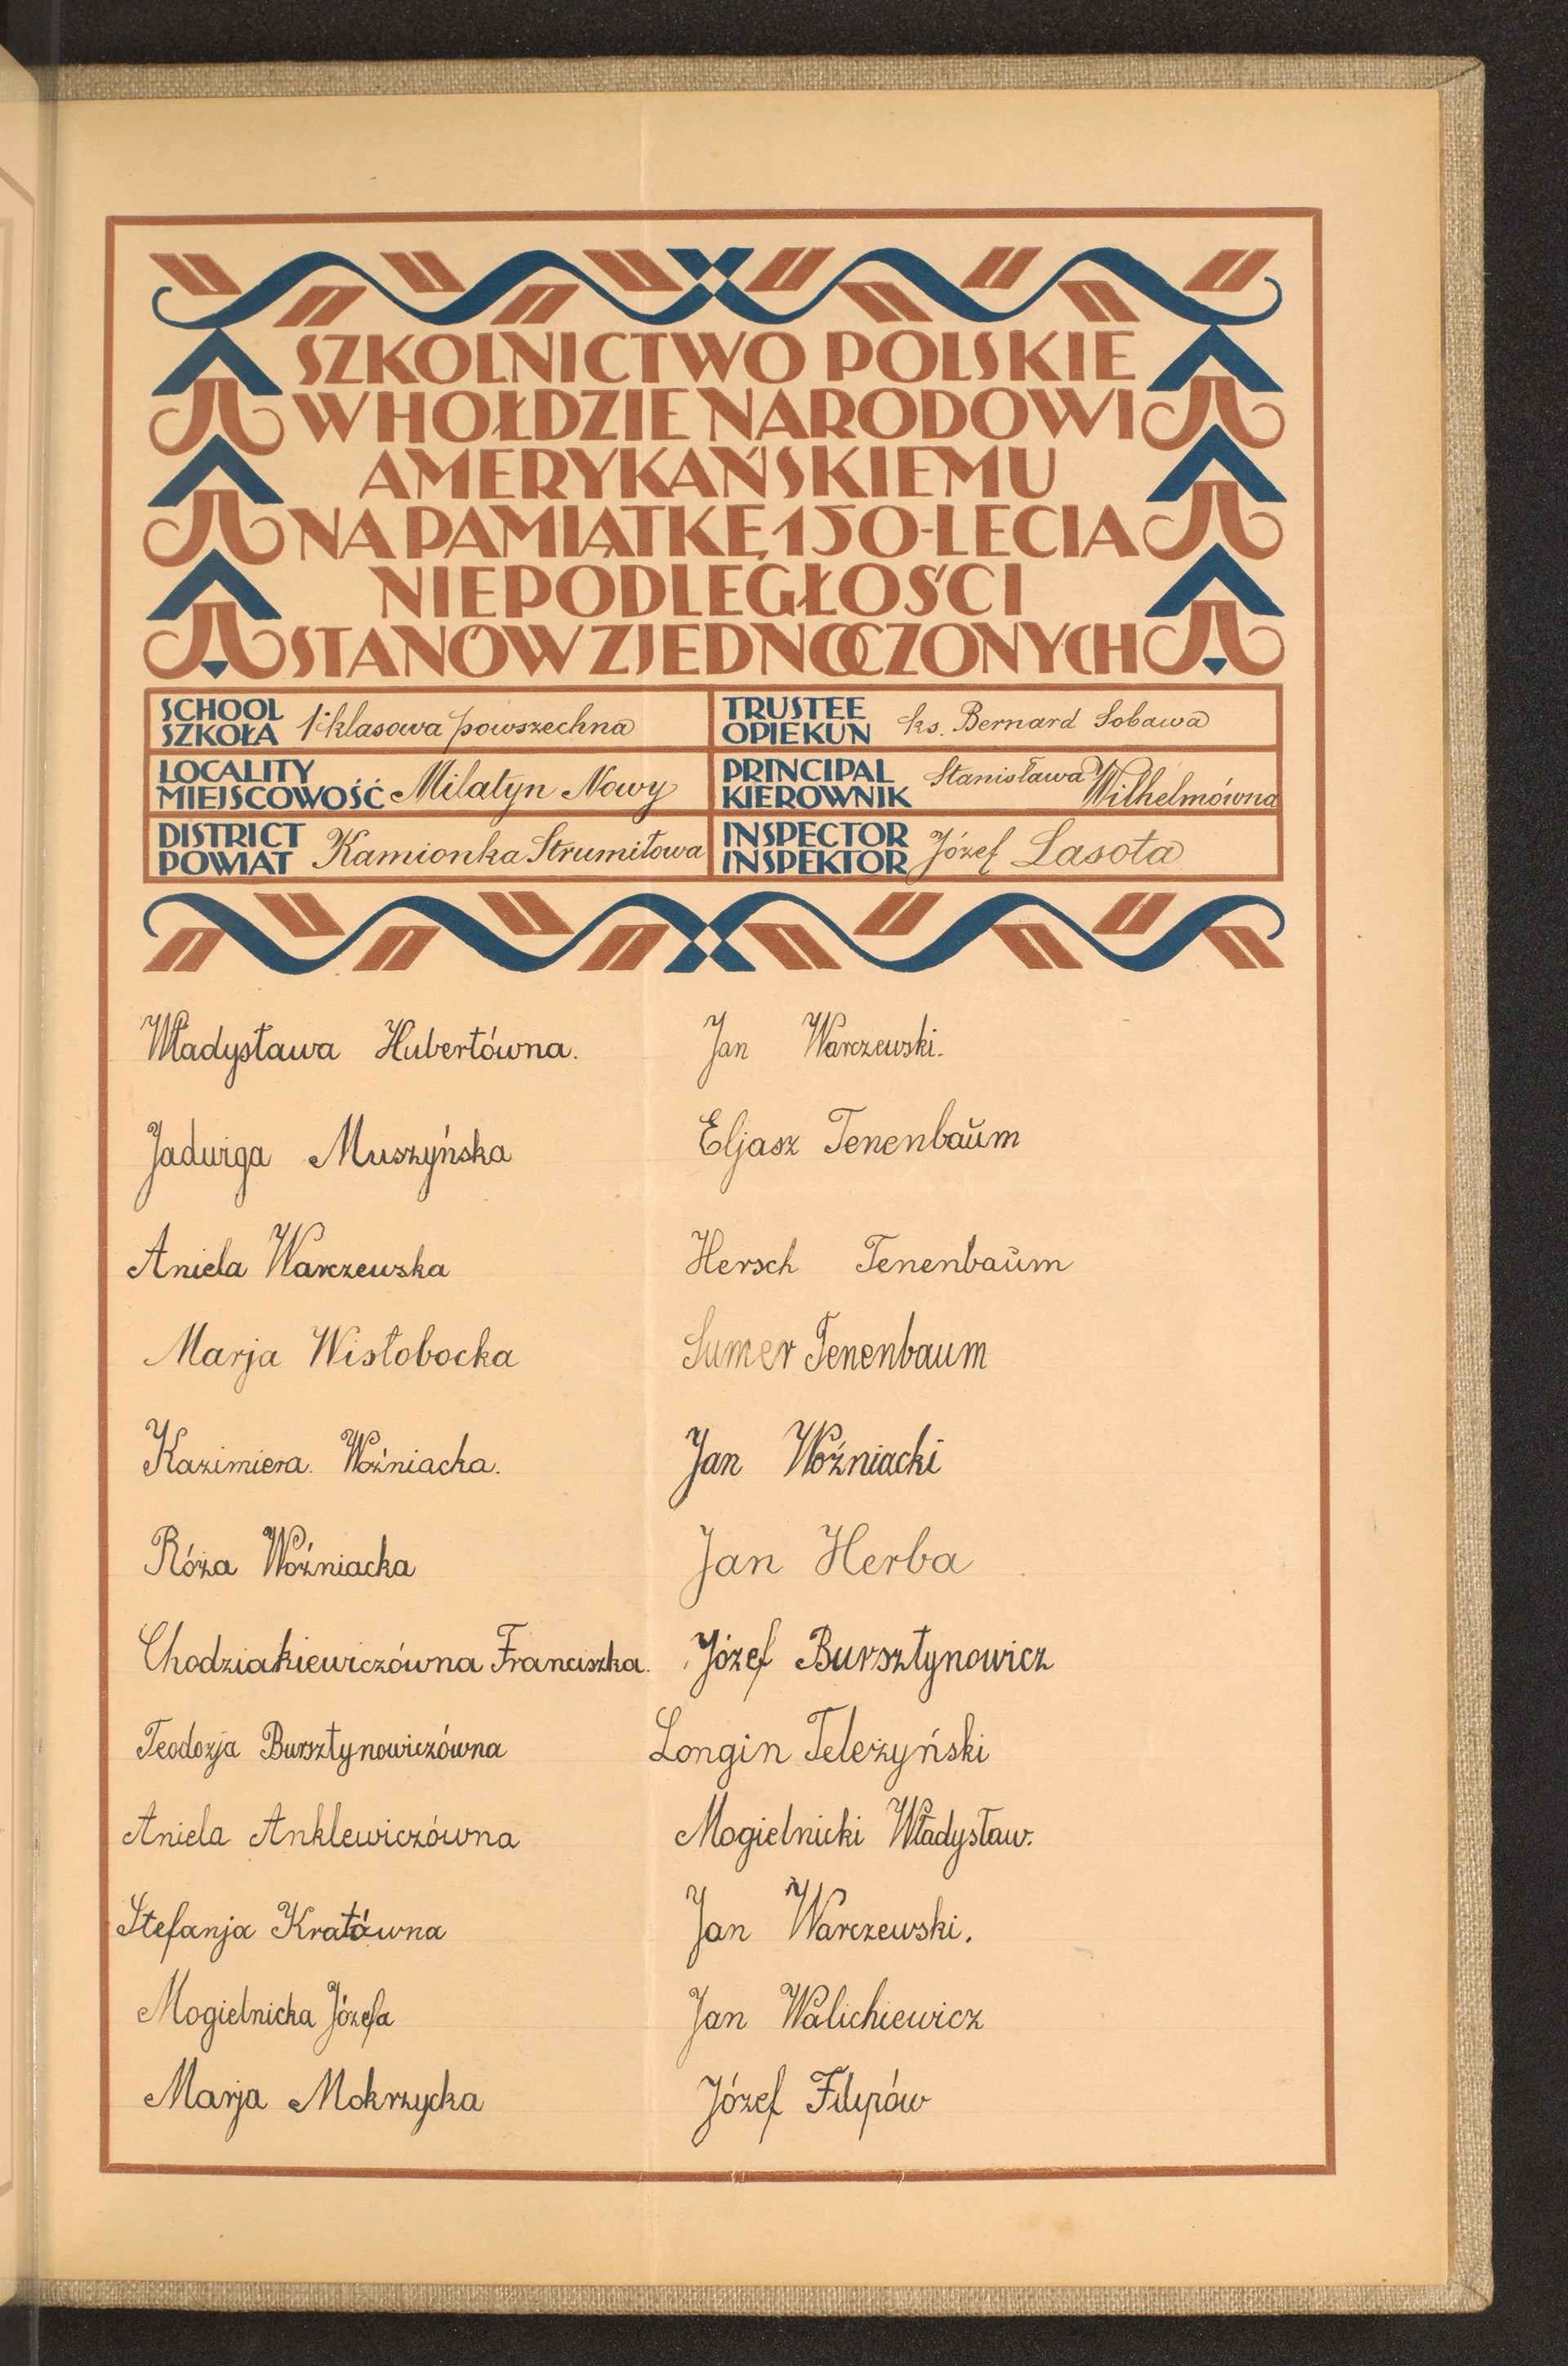 SZKOLNICTWO POLSKIE
W HOŁDZIE NARODOWI
AMERYKAŃSKIEMU
NA PAMIĄTKĘ 150-LECIA
NIEPODLEGŁOŚCI
STANÓW ZJEDNOCZONYCH
SCHOOL
SZKOŁA 1-klasowa powszechna
TRUSTEE
OPIEKUN ks. Bernard Sobawa
LOCALITY
MIEJSCOWOŚĆ Milatyn Nowy
PRINCIPAL
KIEROWNIK Stanisława Wilhelmówna
DISTRICT
POWIAT Kamionka Strumiłowa
INSPECTOR
INSPEKTOR Józef Lasota
Władysława Hubertówna.
Jadwiga Muszyńska
Aniela Warczewska
Marja Wisłobocka
Kazimiera. Woźniacka.
Róża Woźniacka
Chodziakiewiczówna Franciszka.
Teodozja Bursztynowiczówna
Aniela Anklewiczówna
Stefanja Kratówna
Mogielnicka Józefa
Marja Mokrzycka
Jan Warczewski.
Eljasz Tenenbaŭm
Hersch Tenenbaŭm
Sumer Tenenbaum
Jan Woźniacki
Jan Herba
Józef Bursztynowicz
Longin Teleżyński
Mogielnicki Władysław.
Jan Warczewski.
Jan Walichiewicz
Józef Filipów